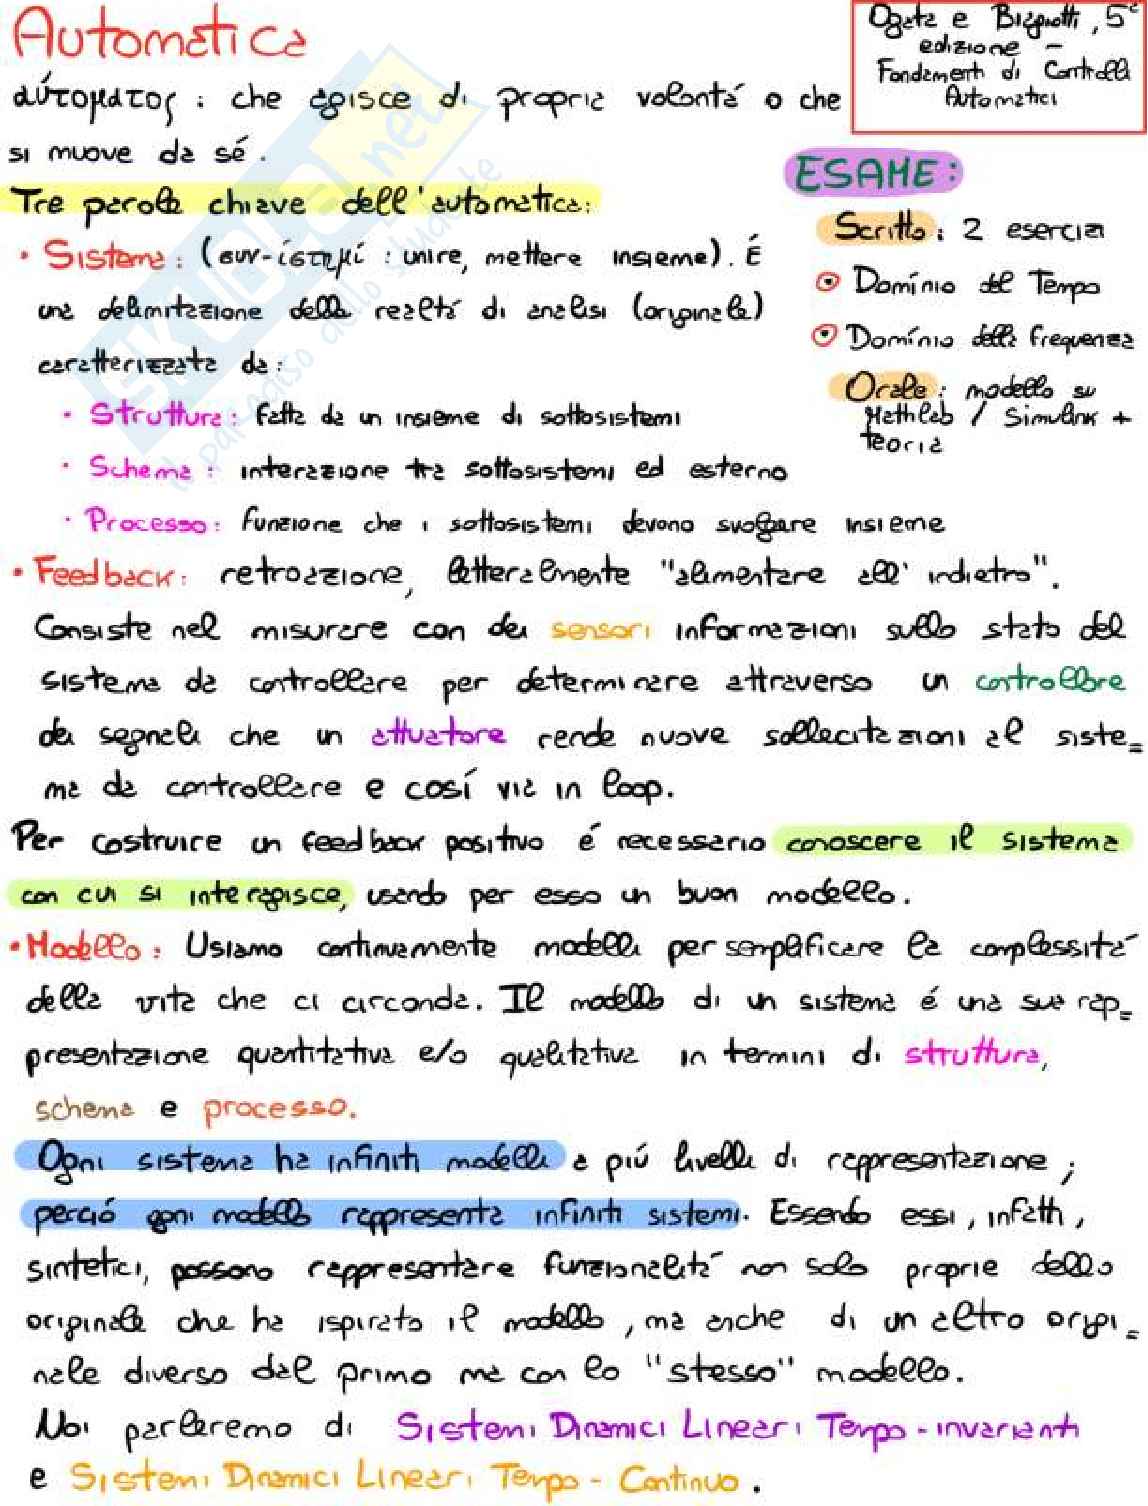 Automatica
Ogata e Biagiotti, 5ª
edizione -
Fondamenti di Controlli
Automatici
αύτοματος : che agisce di propria volontá o che
si muove da sé.
ESAME:
Scritto: 2 esercizi
Domínio del Tempo
Domínio della frequenza
Orale: modello su
Mathlab / Simulink +
teoria
Tre parole chiave dell'automatica:
• Sistema: (συν-ίστημί : unire, mettere insieme). É
una delimitazione della realtá di analisi (originale)
caratterizzata da:
• Struttura: fatta da un insieme di sottosistemi
• Schema: interazione tra sottosistemi ed esterno
• Processo: funzione che i sottosistemi devono svolgere insieme
• Feedback: retroazione, letteralmente "alimentare all'indietro".
Consiste nel misurare con dei sensori informazioni sullo stato del
sistema da controllare per determinare attraverso un controllore
dei segnali che un attuatore rende nuove sollecitazioni al siste=
ma da controllare e cosí via in loop.
Per costruire un feedback positivo é necessario conoscere il sistema
con cui si interagisce, usando per esso un buon modello.
• Modello: Usiamo continuamente modelli per semplificare la complessitá
della vita che ci circonda. Il modello di un sistema é una sua rap=
presentazione quantitativa e/o qualitativa in termini di struttura,
schema e processo.
Ogni sistema ha infiniti modelli a piú livelli di rappresentazione;
perció ogni modello rappresenta infiniti sistemi. Essendo essi, infatti,
sintetici, possono rappresentare funzionalitá non solo proprie dello
originale che ha ispirato il modello, ma anche di un altro origi=
nale diverso dal primo ma con lo "stesso" modello.
Noi parleremo di Sistemi Dinamici Lineari Tempo-invarianti
e Sistemi Dinamici Lineari Tempo-Continuo.
SKUOLA.net
il paradiso dello studente